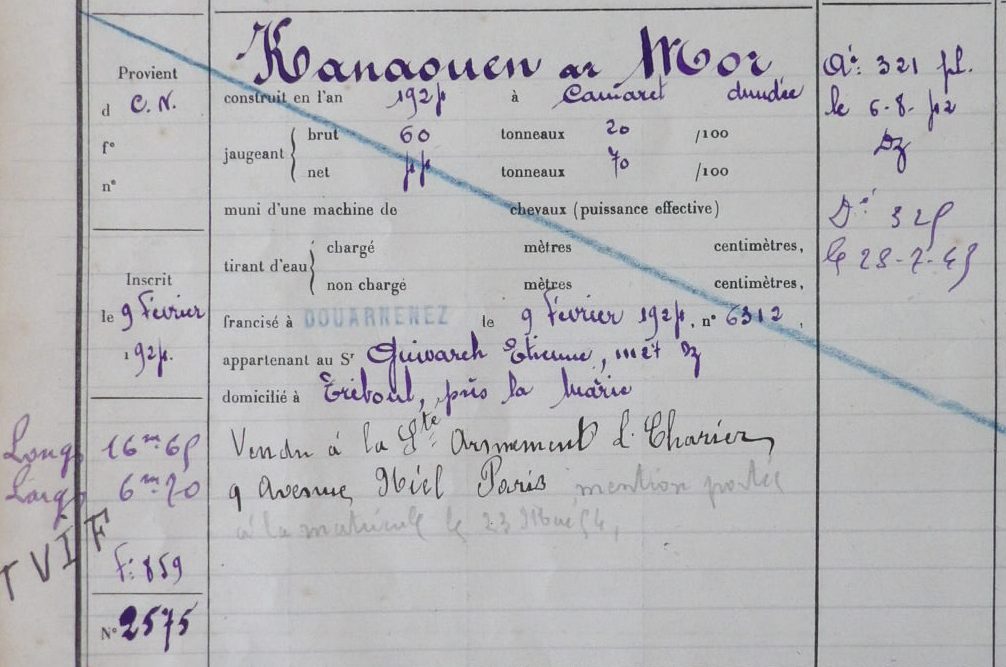 Kanaouen ar Mor
Provient
d C. N.
f°
n°
construit en l'an 1924 à Camaret dundée
jaugeant brut 60 tonneaux 20 /100
net 44 tonneaux 70 /100
muni d'une machine de chevaux (puissance effective)
tirant d'eau chargé mètres centimètres,
non chargé mètres centimètres,
Inscrit
le 9 Février
1924.
francisé à DOUARNENEZ le 9 Février 1924, n° 6312,
appartenant au Sr Guivarch Etienne, met Dz
domicilié à Tréboul, près la Mairie
Long 16m65
Larg 6m20
Vendu à la Sté Armement L. Charier,
9 Avenue Niel Paris mention portée
à la matricule le 23 Mai 54.
TVIF
F: 859
N° 2575
321
le 6-8-42
Dz
325
le 28-7-45